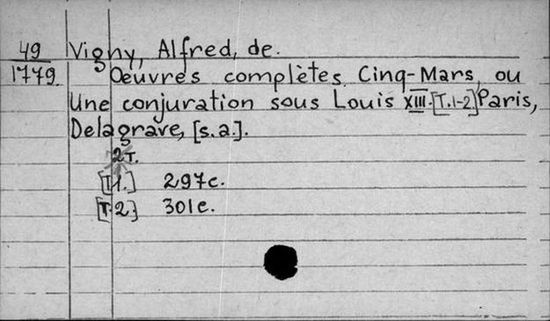 49 Vigny, Alfred, de.
1779. Oeuvres complètes. Cinq-Mars, ou
Une conjuration sous Louis XIII. [T.1-2] Paris,
Delagrave, [s.a.].
2т.
[T1.] 297с.
[T.2.] 301с.